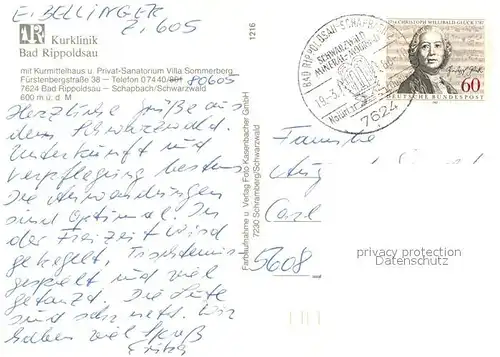 E. BELLINGER
Z. 605
Kurklinik
Bad Rippoldsau
mit Kurmittelhaus u. Privat-Sanatorium Villa Sommerberg
Fürstenbergstraße 38 – Telefon 07440/801 80605
7624 Bad Rippoldsau – Schapbach/Schwarzwald
600 m ü. d M
Herzliche Grüße aus
dem Schwarzwald.
Unterkunft und
Verpflegung bestens
Die Anwendungen
sind optimal. In
der Freizeit wird
gekegelt, Tischtennis
gespielt und viel
getanzt. Die Leute
sind sehr nett. Wir
haben viel Spaß
1216
Farbaufnahme u. Verlag Foto Kasenbacher GmbH
7230 Schramberg/Schwarzwald
BAD RIPPOLDSAU-SCHAPBACH
SCHWARZWALD
MINERAL-MOORBAD
7624
CHRISTOPH WILLIBALD GLUCK
60
DEUTSCHE BUNDESPOST
Familie
Aug
Carl
5608
privacy protection
Datenschutz